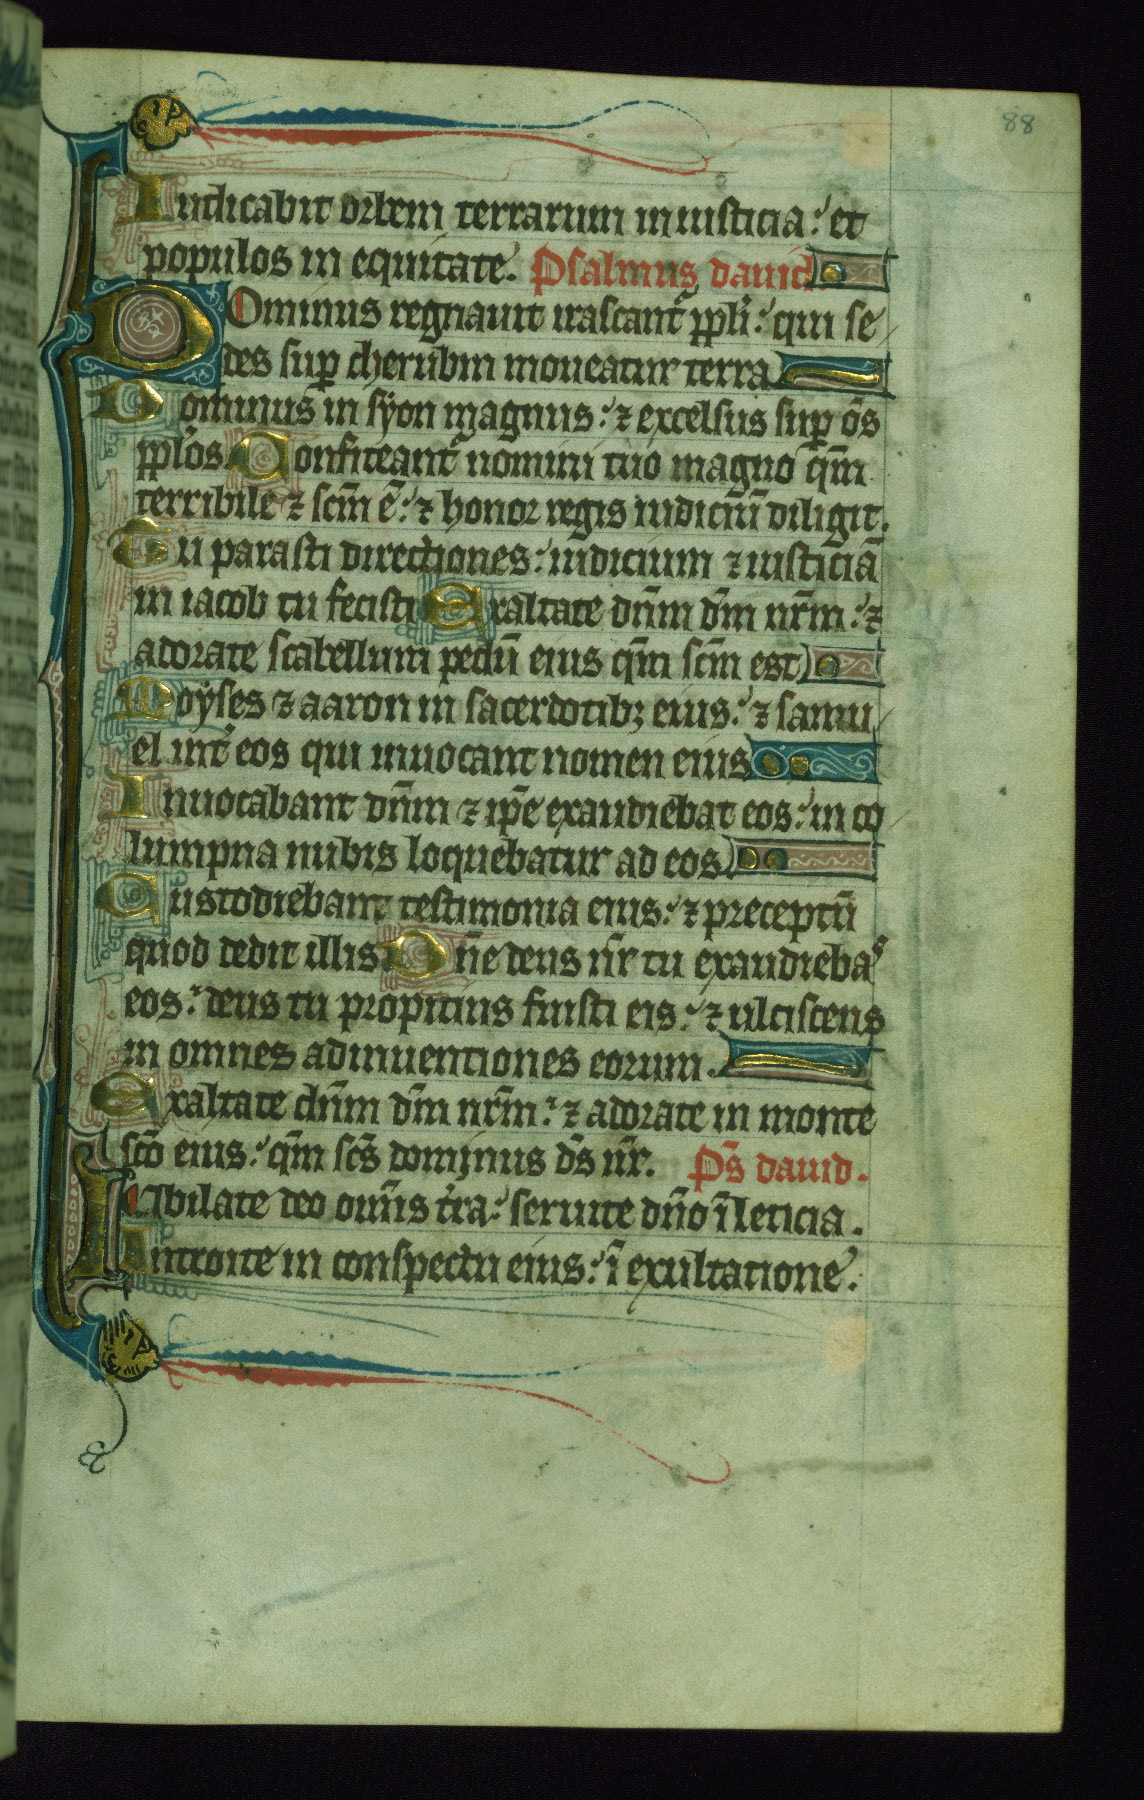 88
Iudicabit orbem terrarum in iusticia: et
populos in equitate. Psalmus dauid.
DOminus regnauit irascant᷑ ꝓpl̃i: qui se
des suꝑ cherubin moueatur terra
Dominus in sẏon magnus: ⁊ excelsus suꝑ om̃s
ppl̃os Confiteant᷑ nomini tuo magno qm̃
terribile ⁊ scm̃ ẽ: ⁊ honor regis iudiciũ diligit.
Tu parasti directiones: iudicium ⁊ iusticiã
in iacob tu fecisti Exaltate dñm dm̃ nr̃m: ⁊
adorate scabellum pedũ eius qm̃ scm̃ est
Moẏses ⁊ aaron in sacerdotibꝫ eius: ⁊ samu
el int᷑ eos qui inuocant nomen eius
Inuocabant dñm ⁊ ip̃e exaudiebat eos: in co
lumpna nubis loquebatur ad eos
Custodiebant testimonia eius: ⁊ preceptũ
quod dedit illis Dñe deus nr̃ tu exaudiebaˢ
eos: deus tu propitius fuisti eis: ⁊ ulciscens
in omnes adinuentiones eorum.
Exaltate dñm dm̃ nr̃m: ⁊ adorate in monte
scõ eius: qm̃ scs̃ dominus ds̃ nr̃. Ps̃ dauid.
IUbilate deo om̃is t̃ra: seruite dño ĩ leticia.
Introite in conspectu eius: ĩ exultatione.